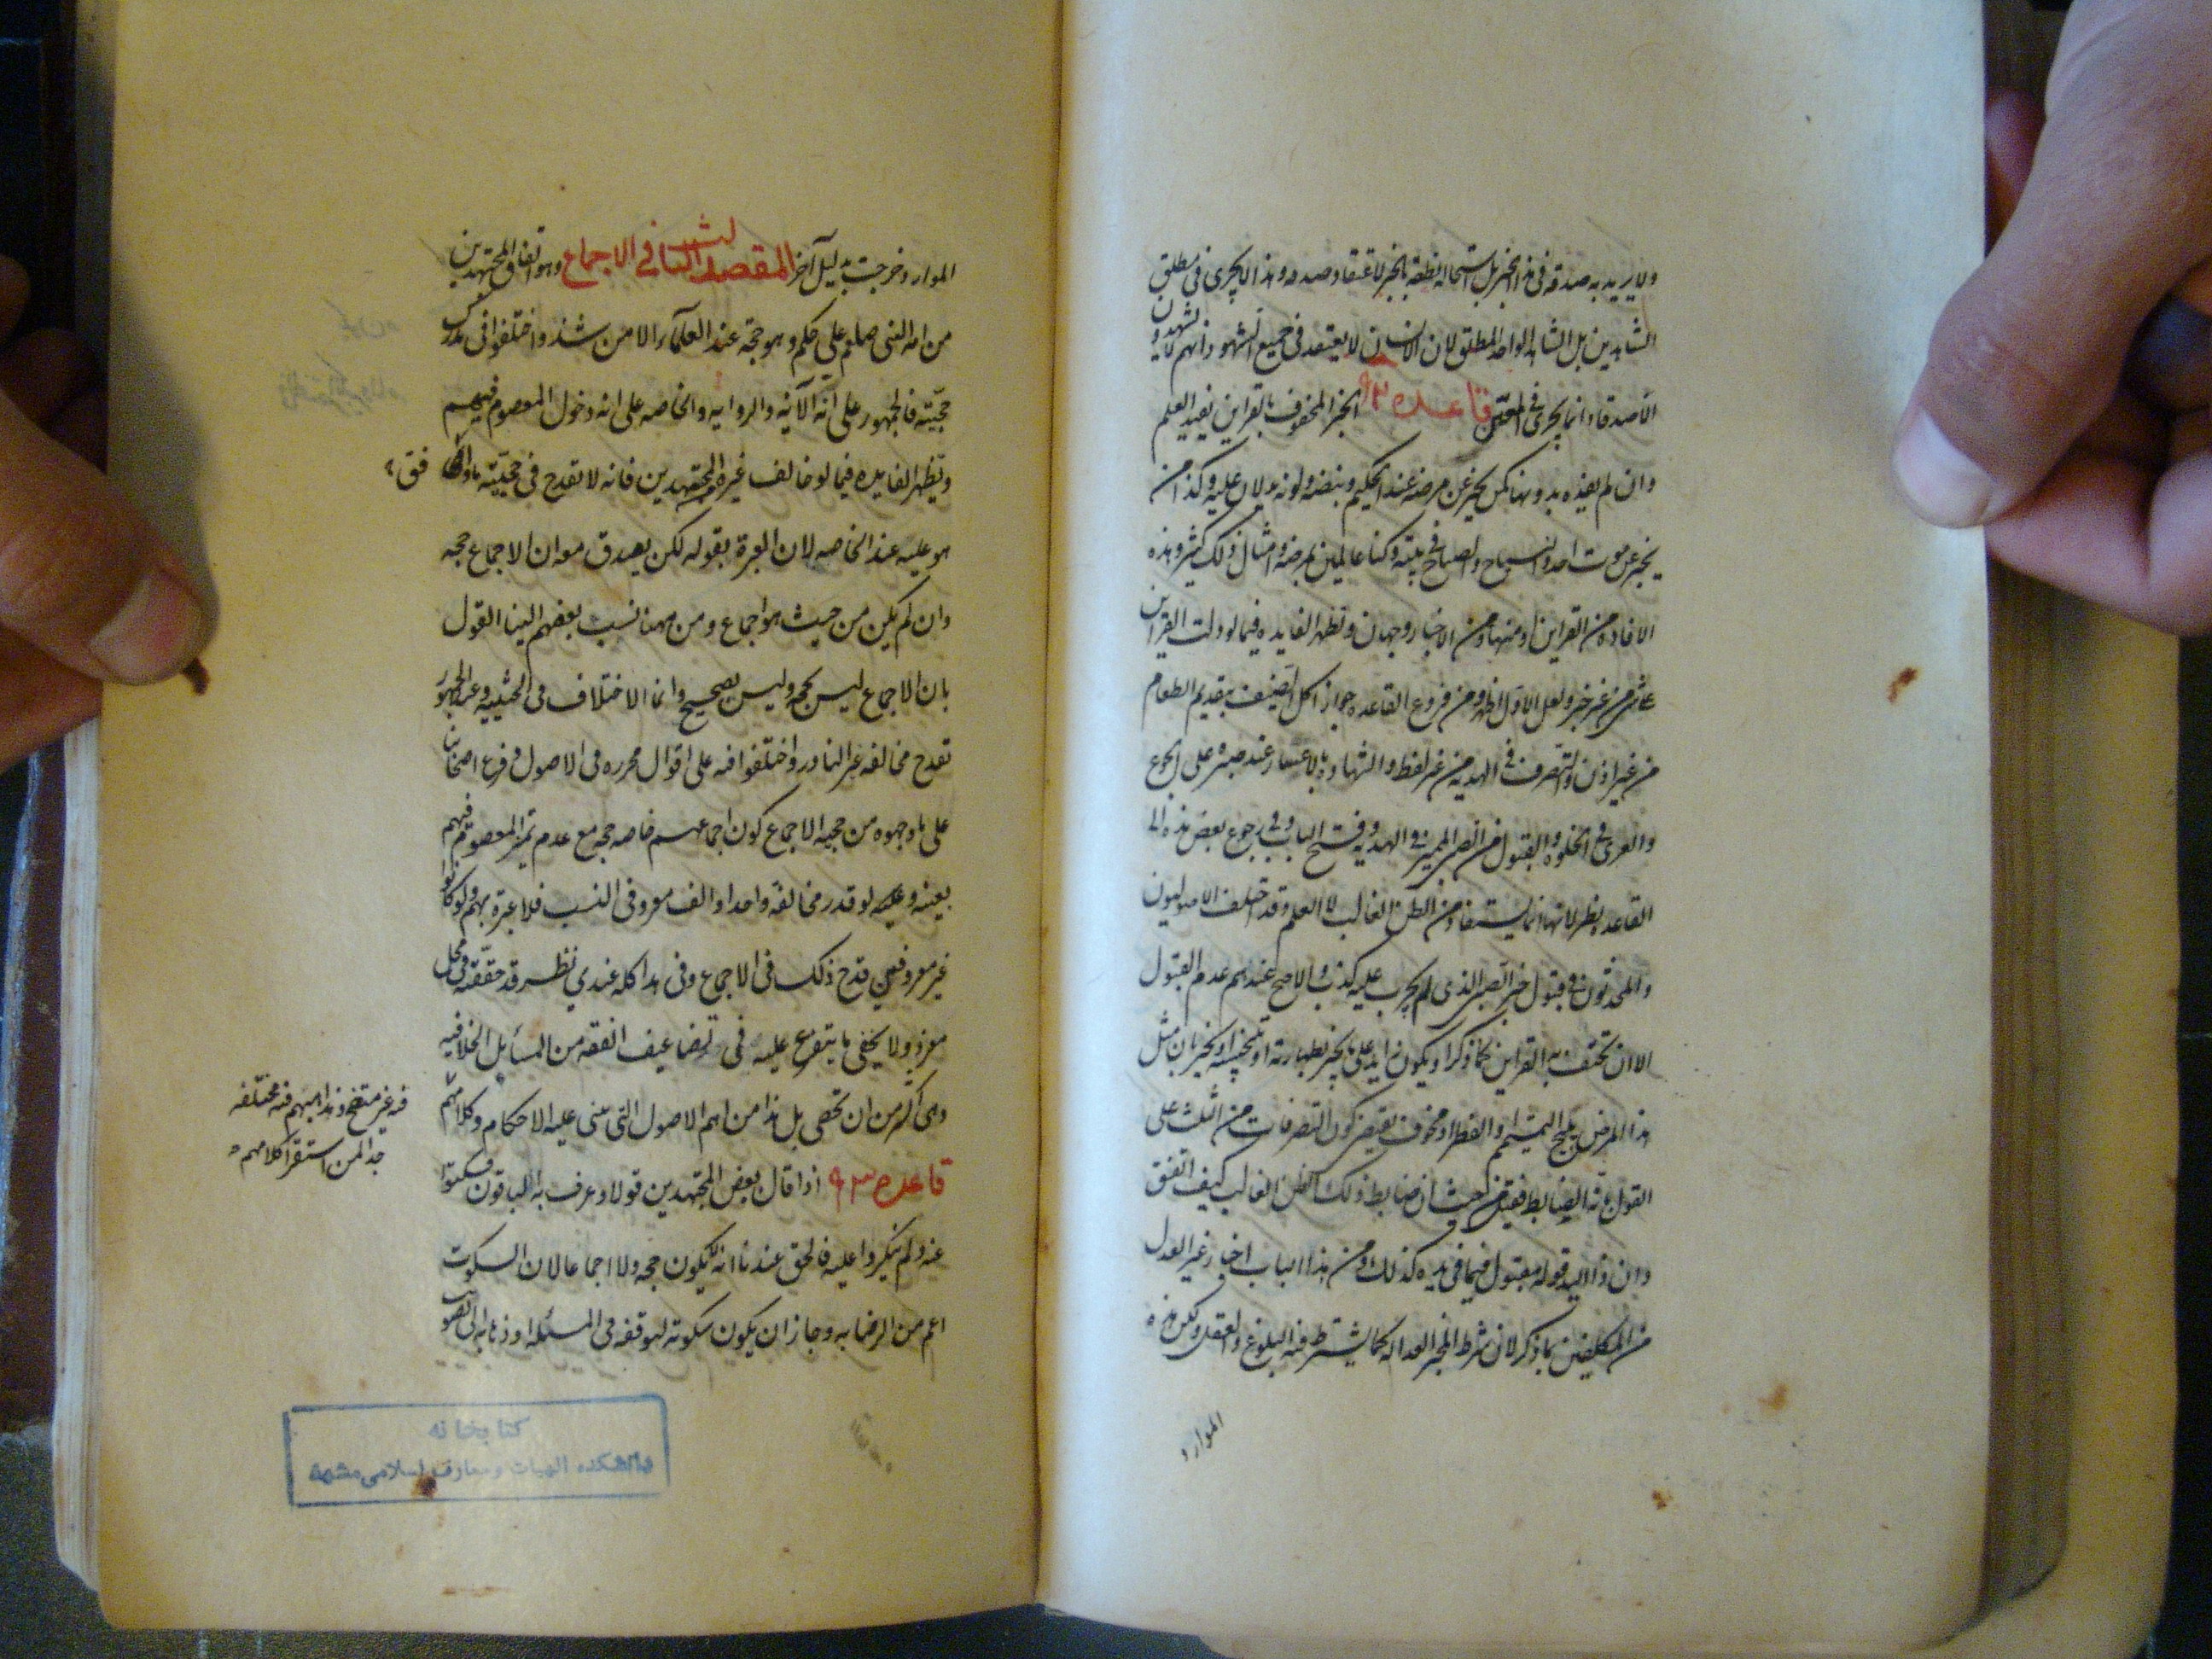 ولا يريد به صدقه في هذا الخبر بل استحالة نطقه بالخبر لاعتقاد صدقه وهذا لا يجرى في مطلق
الشاهدين بل الشاهد الواحد المطلق لان الانسان لا يعتقد في جميع الشهود انهم لا يشهدون
الا صدقا وانما يجرى في المعين قاعده ٩٢ الخبر المحفوف بالقراين يفيد العلم
وان لم يفده بدونها كمن يخبر عن مرضه عند الحكيم ونبضه ولونه يدلان عليه وكذا من
يخبر عن موت احد والنياح والصياح في بيته وكنا عالمين بمرضه وامثال ذلك كثيره وهذه
الافاده من القراين او منها ومن الاخبار وجهان وتظهر الفايده فيما لو دلت القراين
من غير خبر ولعل الاول اظهر ومن فروع القاعده جواز اكل الضيف بتقديم الطعام
من غير اذن والتصرف في الهدية من غير لفظ والشهاده بالاعسار عند صبره على الجوع
والعرى في الخلوه والقبول من الصبي المميز في الهديه وفتح الباب وفي رجوع بعض هذه الى
القاعده نظر لانها انما يستفاد من الظن الغالب لا العلم وقد اختلف الاصوليون
والمحدثون في قبول خبر الصبي الذى لم يجرب عليه كذب والاصح عندهم عدم القبول
الا ان تحتف به القراين كما ذكر او يكون ذا يد على ما يخبر بطهارته او تنجيسه او يخبر بان مثل
هذا المرض يبيح التيمم او الفطر او مخوف يقتضى كون التصرفات من الثلث على
القول بانه الضابط فيقبل حيث ان ضابط ذلك الظن الغالب كيف اتفق
وان ذا اليد قوله مقبول فيما في يده كذلك ومن هذا الباب اخبار غير العدل
من المكلفين بما ذكر لان شرط المخبر العداله كما يشترط فيه البلوغ والعقل ولكن هذه
الموارد
الموارد وخرجت بدليل آخر المقصد الثالث في الاجماع وهو اتفاق المجتهدين
من امه النبى صلعم على حكم وهو حجة عند العلماء الا من شذ واختلفوا فى مدرك
حجيته فالجمهور على انه الآيه والروايه والخاصه على انه دخول المعصوم فيهم
وتظهر الفايده فيما لو خالف غيره من المجتهدين فانه لا تقدح فى حجيته
هو عليه عند الخاصه لان العبرة بقوله لكن يصدق معه ان الاجماع حجه
وان لم يكن من حيث هو اجماع ومن ههنا نسب بعضهم الينا القول
بان الاجماع ليس بحجه وليس بصحيح وانما الاختلاف فى الحيثيه وعند الجمهور
تقدح مخالفه غير النادر واختلفوا فيه على اقوال محرره فى الاصول وفرع اصحابنا
على ما وجهوه من حجيه الاجماع كون اجماعهم خاصه حجه مع عدم تميز المعصوم فيهم
بعينه وعليه لو قدر مخالفة واحد او الف معروفى النسب فلا عبرة بهم ولو كانوا
غير معروفين قدح ذلك فى الاجماع وفى هذا كله عندي نظر قد حققته فى محل
مفرد ولا يخفى ما يتفرع عليه فى تضاعيف الفقه من المسائل الخلافيه
وهى اكثر من ان تحصى بل هذا من اهم الاصول التى تبنى عليه الاحكام وكلامهم
فيه غير منقح ومذاهبهم فيه مختلفه
جدا لمن استقرأ كلامهم
قاعده ٩٣ اذا قال بعض المجتهدين قولا وعرف به الباقون فسكتوا
عنه ولم ينكروا عليه فالحق عندنا انه لا يكون حجه ولا اجماعا لان السكوت
اعم من الرضا به وجاز ان يكون سكوته لتوقفه فى المسئله او ذهابه الى تصويب
كتابخانه
دانشكده الهيات ومعارف اسلامى مشهد